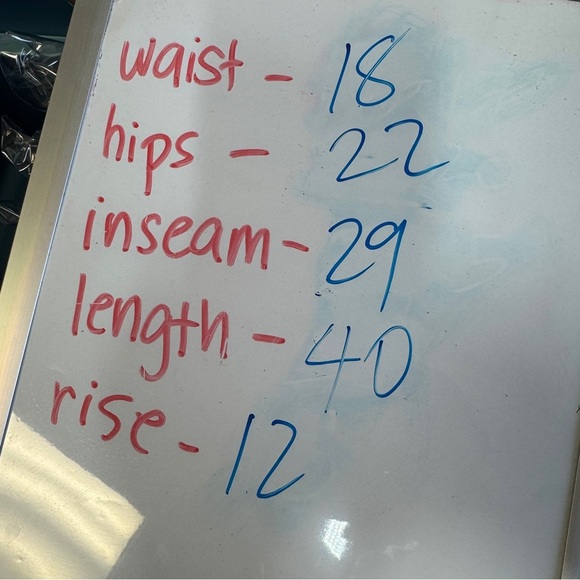 waist - 18
hips - 22
inseam - 29
length - 40
rise - 12